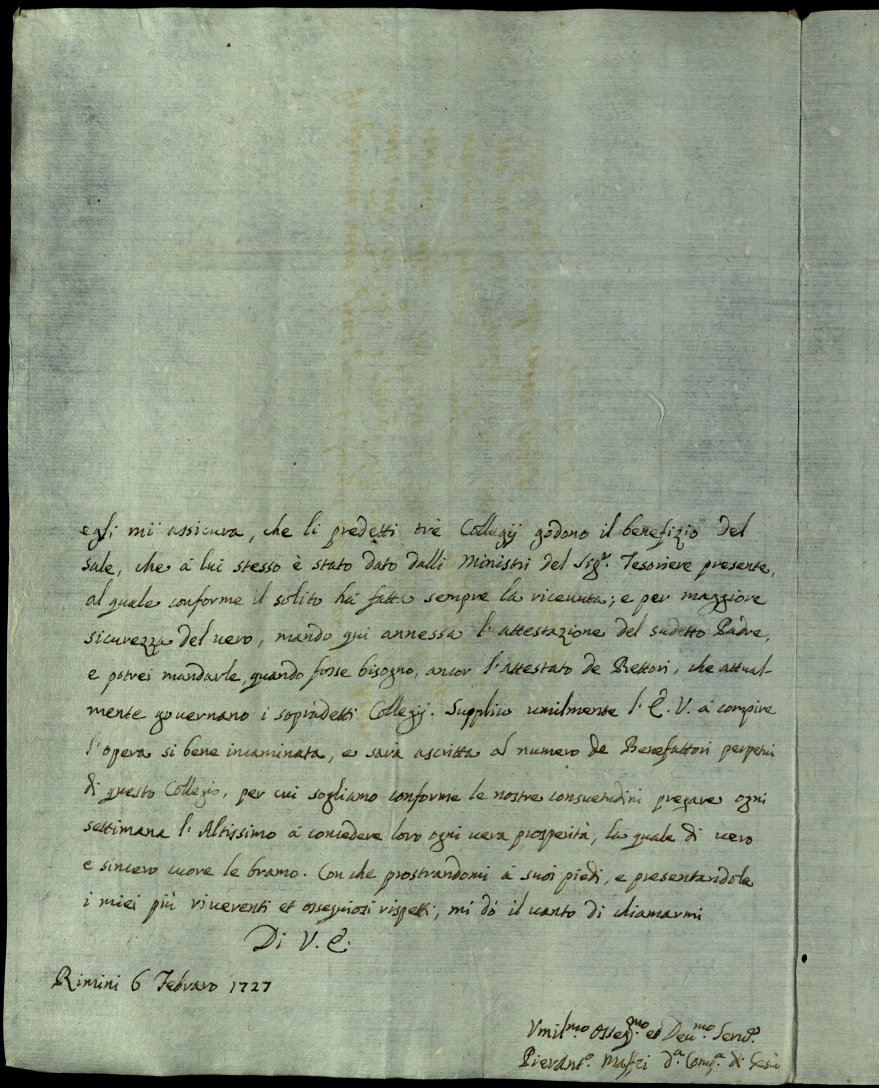 egli mi assicura, che li predetti trè Collegij godono il benefizio del
sale, che à lui stesso è stato dato dalli Ministri del Sig.r Tesoriere presente,
al quale conforme il solito hà fatta sempre la riceuuta; e per maggiore
sicurezza del uero, mando qui annessa l'attestazione del sudetto Padre,
e potrei mandarle, quando fosse bisogno, ancor l'attestato de Rettori, che attual-
mente gouernano i sopradetti Collegij. Supplico umilmente l'E. V. à compire
l'opera si bene incaminata, e sarà ascritta al numero de Benefattori perpetui
di questo Collegio, per cui sogliamo conforme le nostre consuetudini pregare ogni
settimana l'Altissimo à concedere loro ogni uera prosperità, la quale di uero
e sincero cuore le bramo. Con che prostrandomi à suoi piedi, e presentandole
i miei più riuerenti et ossequiosi rispetti, mi dò il uanto di chiamarmi
Di V. E.
Rimini 6 Febraro 1727
Vmil.mo Osseq.mo et Deu.mo Seru.e
Pierant.o Maffei d.a Comp.a di Gesù